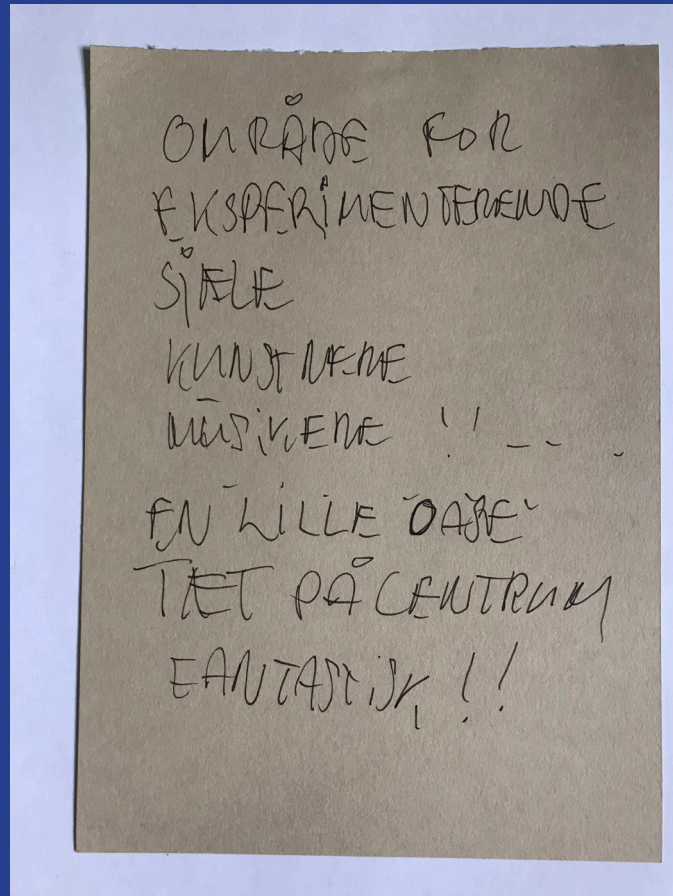 OMRÅDE FOR
EKSPERIMENTERENDE
SJÆLE
KUNSTNERE
MUSIKERE !! -- -
EN LILLE "OASE"
TÆT PÅ CENTRUM
FANTASTISK!!